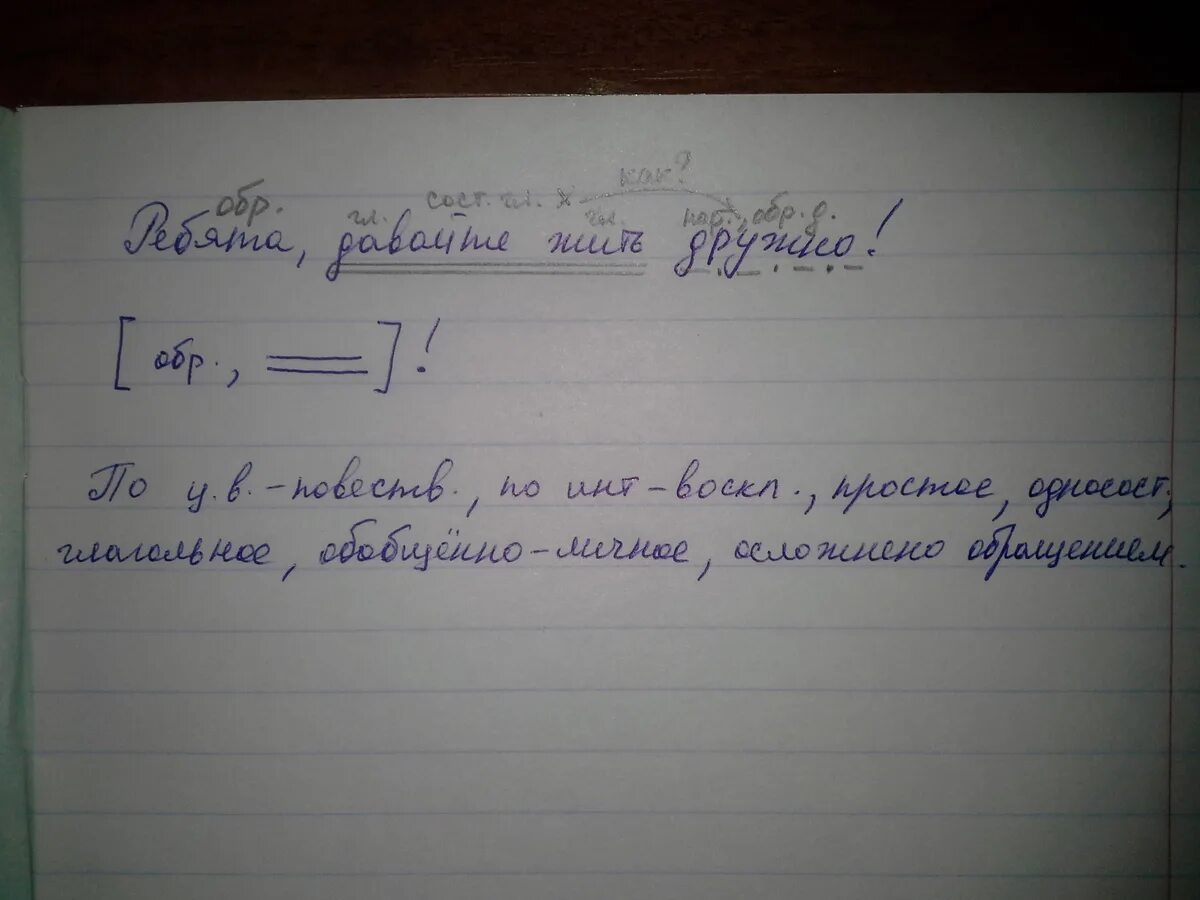 как?
обр. гл. сост. гл. х гл. нар., обр. д.
Ребята, давайте жить дружно!
[обр., ]!
По ц.в. - повеств., по инт - воскл., простое, односост.,
глагольное, обобщённо-личное, осложнено обращением.